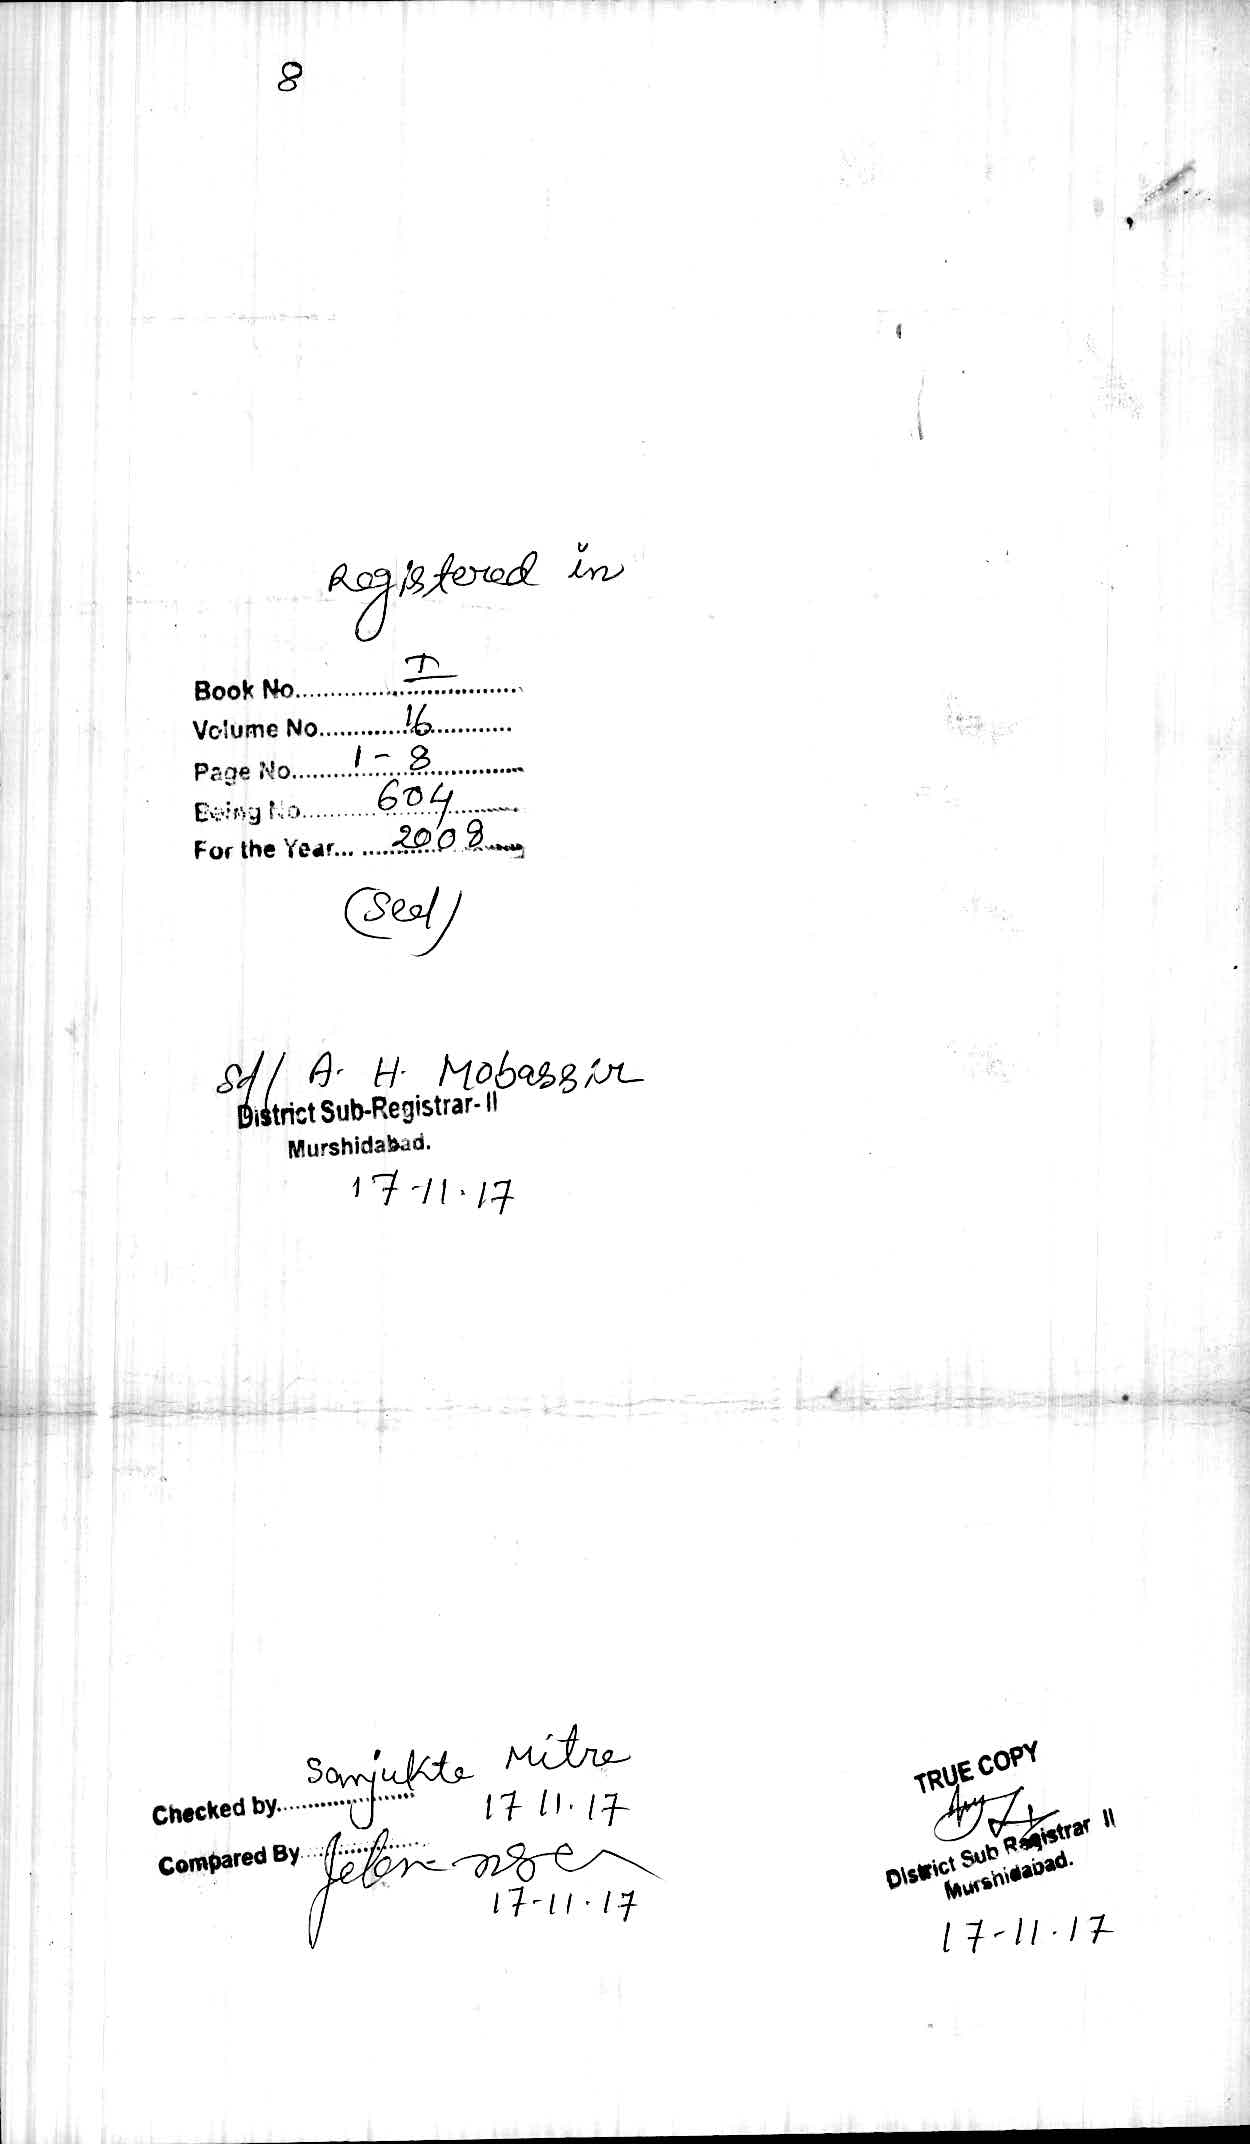 8
Registered in
Book No............I............
Volume No............16............
Page No............1-8............
Being No............604............
For the Year... ......2008......
(Seal)
Sd/ A. H. Mobassir
District Sub-Registrar-II
Murshidabad.
17-11.17
Sanjukta Mitra
Checked by....................
17 11.17
Compared By....................
17-11.17
TRUE COPY
District Sub Registrar II
Murshidabad.
17-11.17